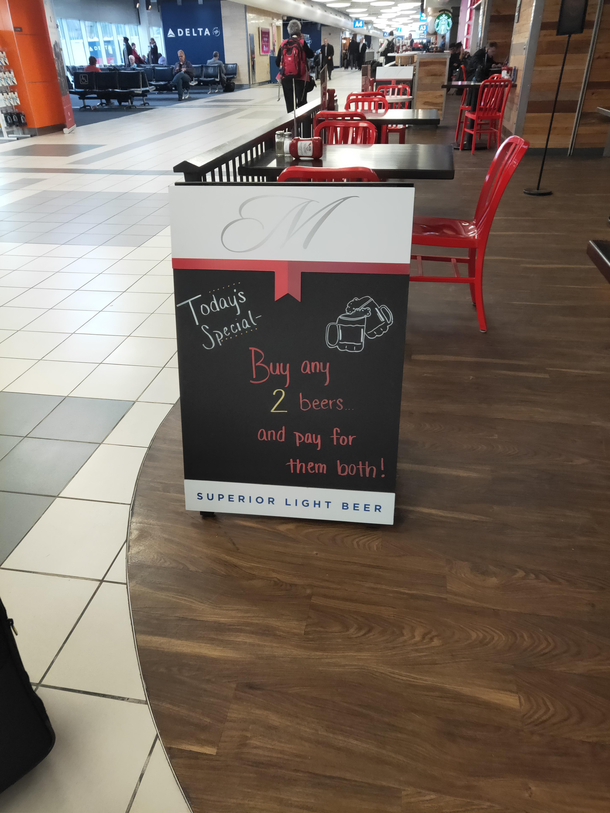 DELTA
M
Today's
Special-
Buy any
2 beers...
and pay for
them both!
SUPERIOR LIGHT BEER